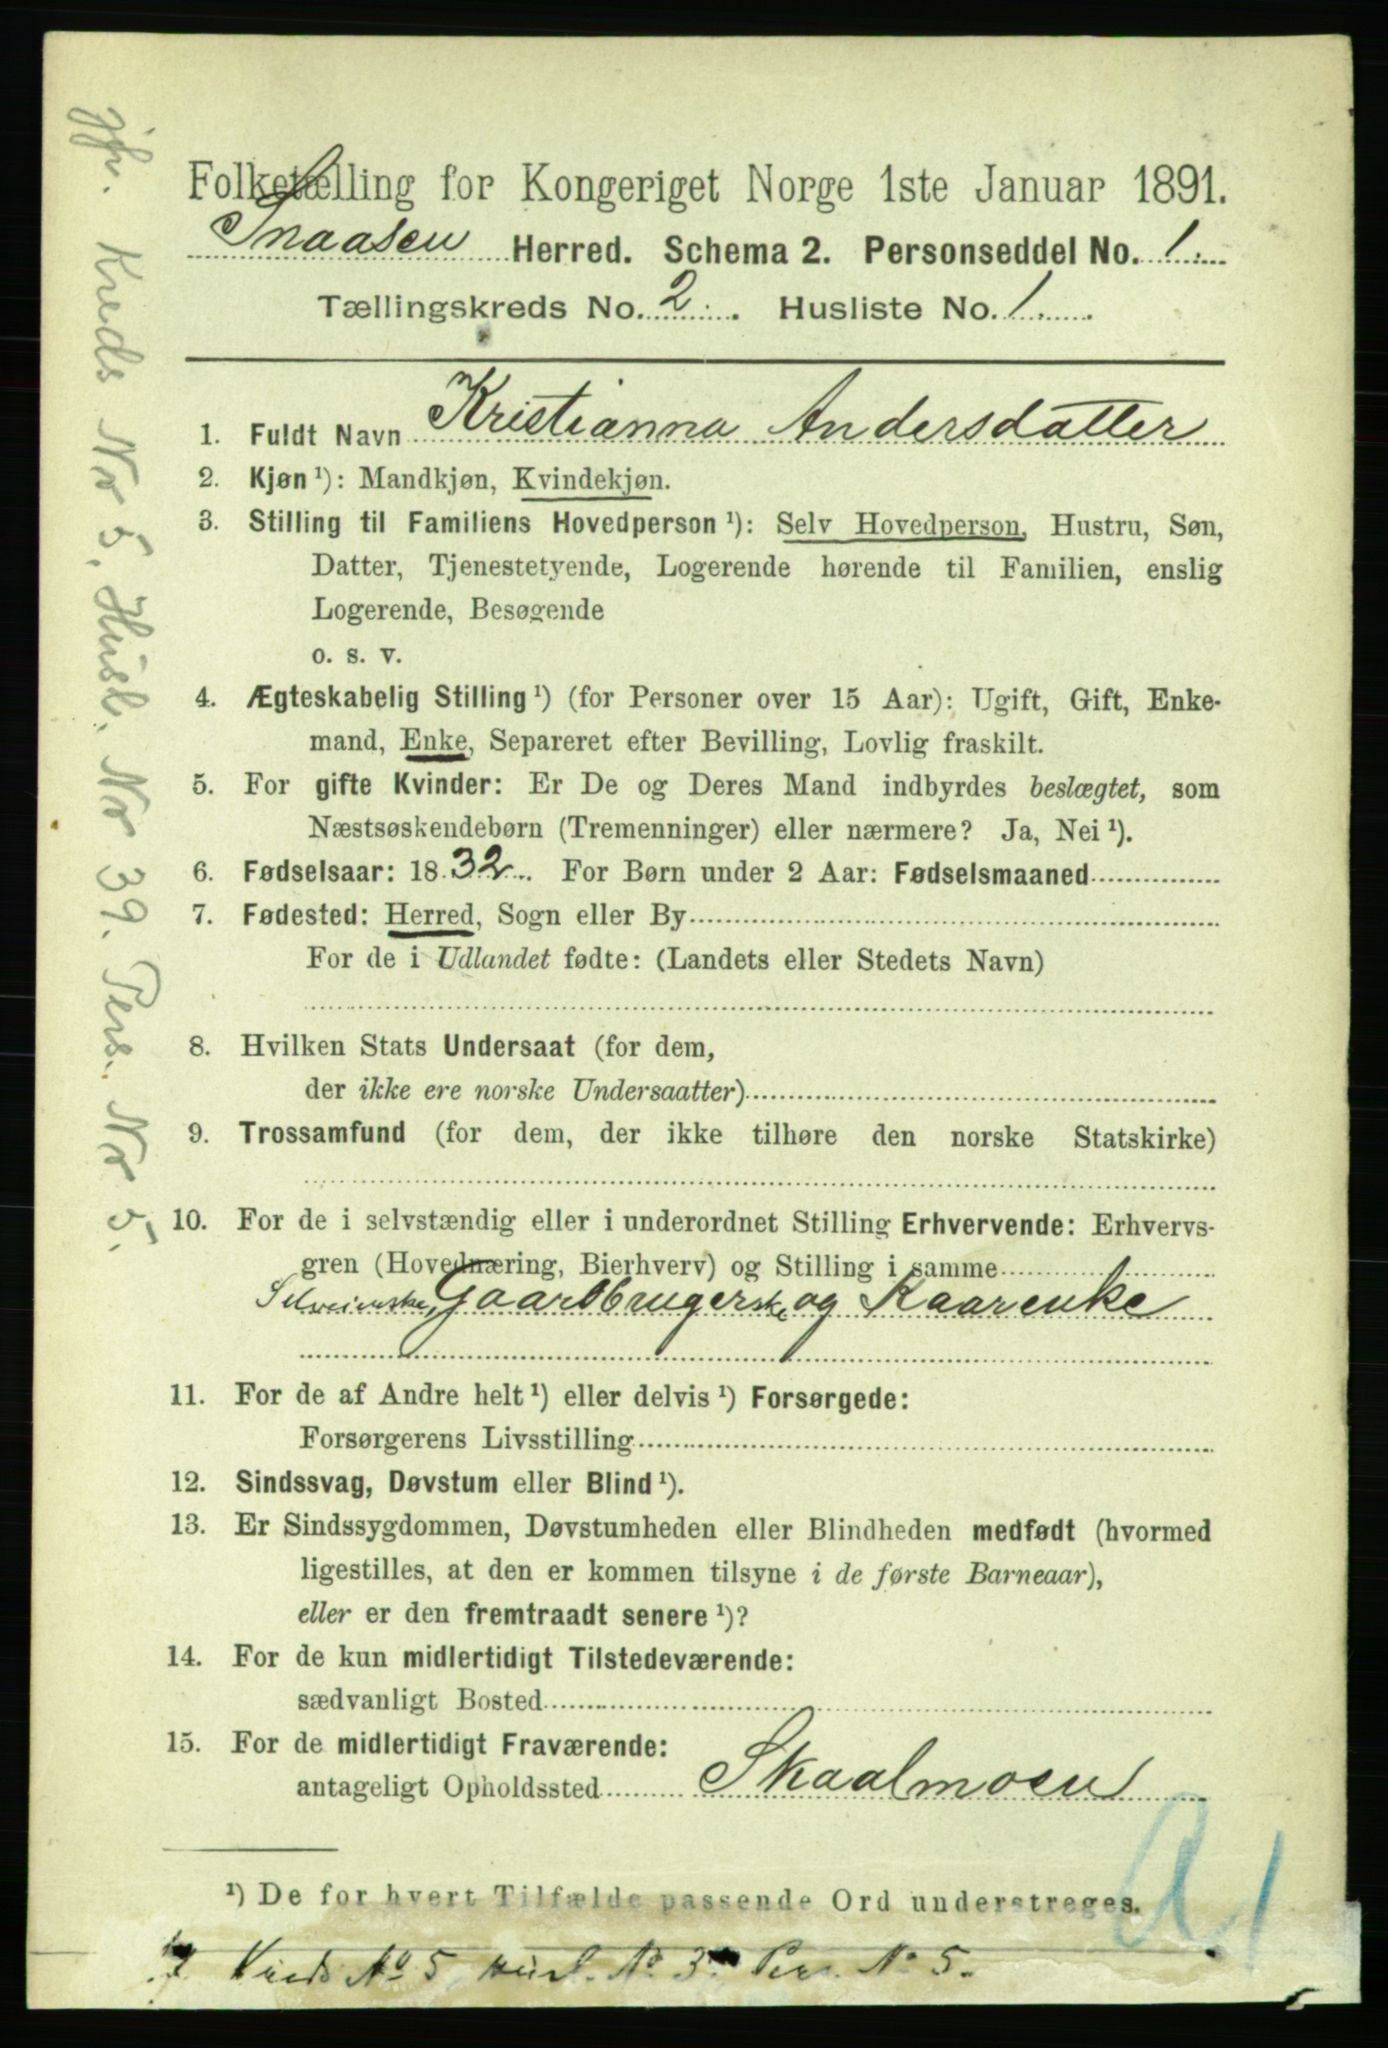 Folketælling for Kongeriget Norge 1ste Januar 1891.
Snaasen Herred. Schema 2. Personseddel No. 1.
Tællingskreds No. 2. Husliste No. 1.
1. Fuldt Navn Kristianna Andersdatter
2. Kjøn ¹): Mandkjøn, Kvindekjøn.
3. Stilling til Familiens Hovedperson ¹): Selv Hovedperson, Hustru, Søn,
Datter, Tjenestetyende, Logerende hørende til Familien, enslig
Logerende, Besøgende
o. s. v.
4. Ægteskabelig Stilling ¹) (for Personer over 15 Aar): Ugift, Gift, Enke-
mand, Enke, Separeret efter Bevilling, Lovlig fraskilt.
5. For gifte Kvinder: Er De og Deres Mand indbyrdes beslægtet, som
Næstsøskendebørn (Tremenninger) eller nærmere? Ja, Nei ¹).
6. Fødselsaar: 1832. For Børn under 2 Aar: Fødselsmaaned
7. Fødested: Herred, Sogn eller By
For de i Udlandet fødte: (Landets eller Stedets Navn)
8. Hvilken Stats Undersaat (for dem,
der ikke ere norske Undersaatter)
9. Trossamfund (for dem, der ikke tilhøre den norske Statskirke)
10. For de i selvstændig eller i underordnet Stilling Erhvervende: Erhvervs-
gren (Hovednæring, Bierhverv) og Stilling i samme
Selveierske, Gaardbrugerske og Kaarenke
11. For de af Andre helt ¹) eller delvis ¹) Forsørgede:
Forsørgerens Livsstilling
12. Sindssvag, Døvstum eller Blind ¹).
13. Er Sindssygdommen, Døvstumheden eller Blindheden medfødt (hvormed
ligestilles, at den er kommen tilsyne i de første Barneaar),
eller er den fremtraadt senere ¹)?
14. For de kun midlertidigt Tilstedeværende:
sædvanligt Bosted
15. For de midlertidigt Fraværende:
antageligt Opholdssted Skaalmoen
¹) De for hvert Tilfælde passende Ord understreges.
Kreds No 5 Husl. No 3 Pers. No 5.
A. 1
jfr. Kreds No 5, Husl. No 39. Pers. No 5.